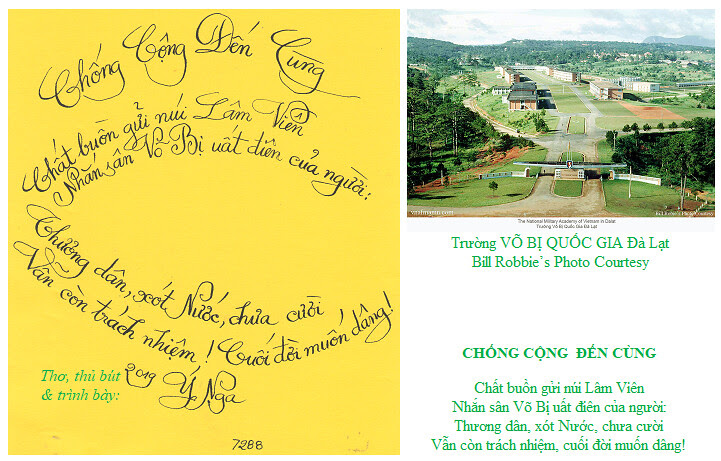 Chống Cộng Đến Cùng
Chất buồn gửi núi Lâm Viên
Nhắn sân Võ Bị uất điên của người:
Thương dân, xót Nước, chưa cười
Vẫn còn trách nhiệm! Cuối đời muốn dâng!
Thơ, thủ bút
& trình bày:
2019 Ý Nga
7288
vnafmamn.com
Bill Robbie's Photo Courtesy
The National Military Academy of Vietnam in Dalat
Trường Võ Bị Quốc Gia Đà Lạt
Trường VÕ BỊ QUỐC GIA Đà Lạt
Bill Robbie's Photo Courtesy
CHỐNG CỘNG ĐẾN CÙNG
Chất buồn gửi núi Lâm Viên
Nhắn sân Võ Bị uất điên của người:
Thương dân, xót Nước, chưa cười
Vẫn còn trách nhiệm, cuối đời muốn dâng!